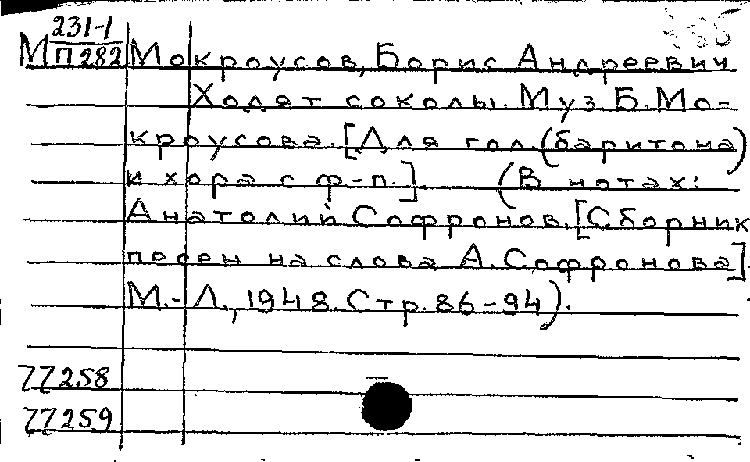 М 231-1
П 282
Мокроусов, Борис Андреевич
Ходят соколы. Муз. Б. Мо-
кроусова. [Для гол. (баритона)
и хора с ф-п.]. (В нотах:
Анатолий Софронов. [Сборник
песен на слова А. Софронова].
М.-Л., 1948. Стр. 86-94).
77258
77259